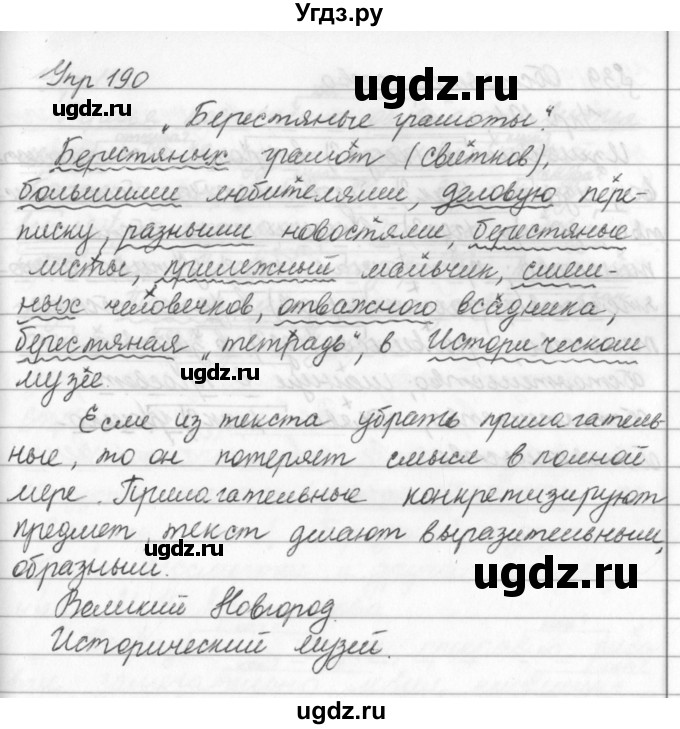 Угдз.ру
Упр 190
ugdz.ru
ugdz.ru
„Берестяные грамоты".
Берестяных грамот (свитков),
большими любителями, деловую пере-
писку, разными новостями, берестяные
листы, прилежный мальчик, смеш-
ных человечков, отважного всадника,
берестяная „тетрадь", в Историческом
музее.
ugdz.ru
Если из текста убрать прилагатель-
ные, то он потеряет смысл в полной
мере. Прилагательные конкретизируют
предмет, текст делают выразительным,
ugdz.ru
образным.
ugdz.ru
Великий Новгород.
Исторический музей.
ugdz.ru